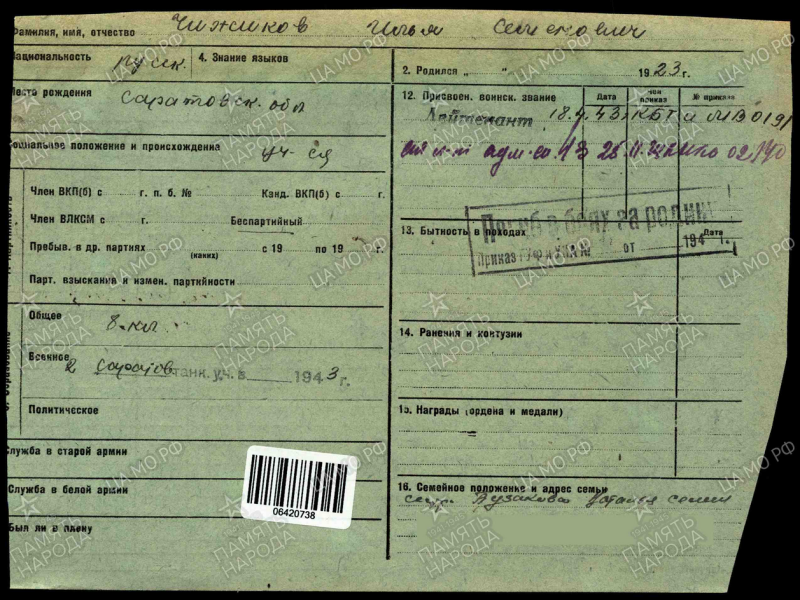 Фамилия, имя, отчество Чижиков Илья Семенович
Национальность русск. 4. Знание языков
Место рождения
Саратовск. обл
Социальное положение и происхождения
уч-ся
Член ВКП(б) с г. п. б. № Канд. ВКП(б) с г.
Член ВЛКСМ с г. Беспартийный
Пребыв. в др. партиях с 19 по 19 г.
(каких)
Парт. взыскания и измен. партийности
Общее 8 кл.
Военное
2 Саратов танк. уч. в 1943 г.
Политическое
Служба в старой армии
Служба в белой армии
Был ли в плену
06420738
2. Родился „ " 1923 г.
12. Присвоен. воинск. звание Дата Чей приказ № приказа
Лейтенант 18.4.43 КБТ и МВ 0191
25.11. 02190
Погиб в боях за родину
Приказ ГУФ и УКА № от 194 г.
13. Бытность в походах Дата
14. Ранения и контузии
15. Награды (ордена и медали)
16. Семейное положение и адрес семьи
сестр.
ПАМЯТЬ НАРОДА
ЦАМО.РФ